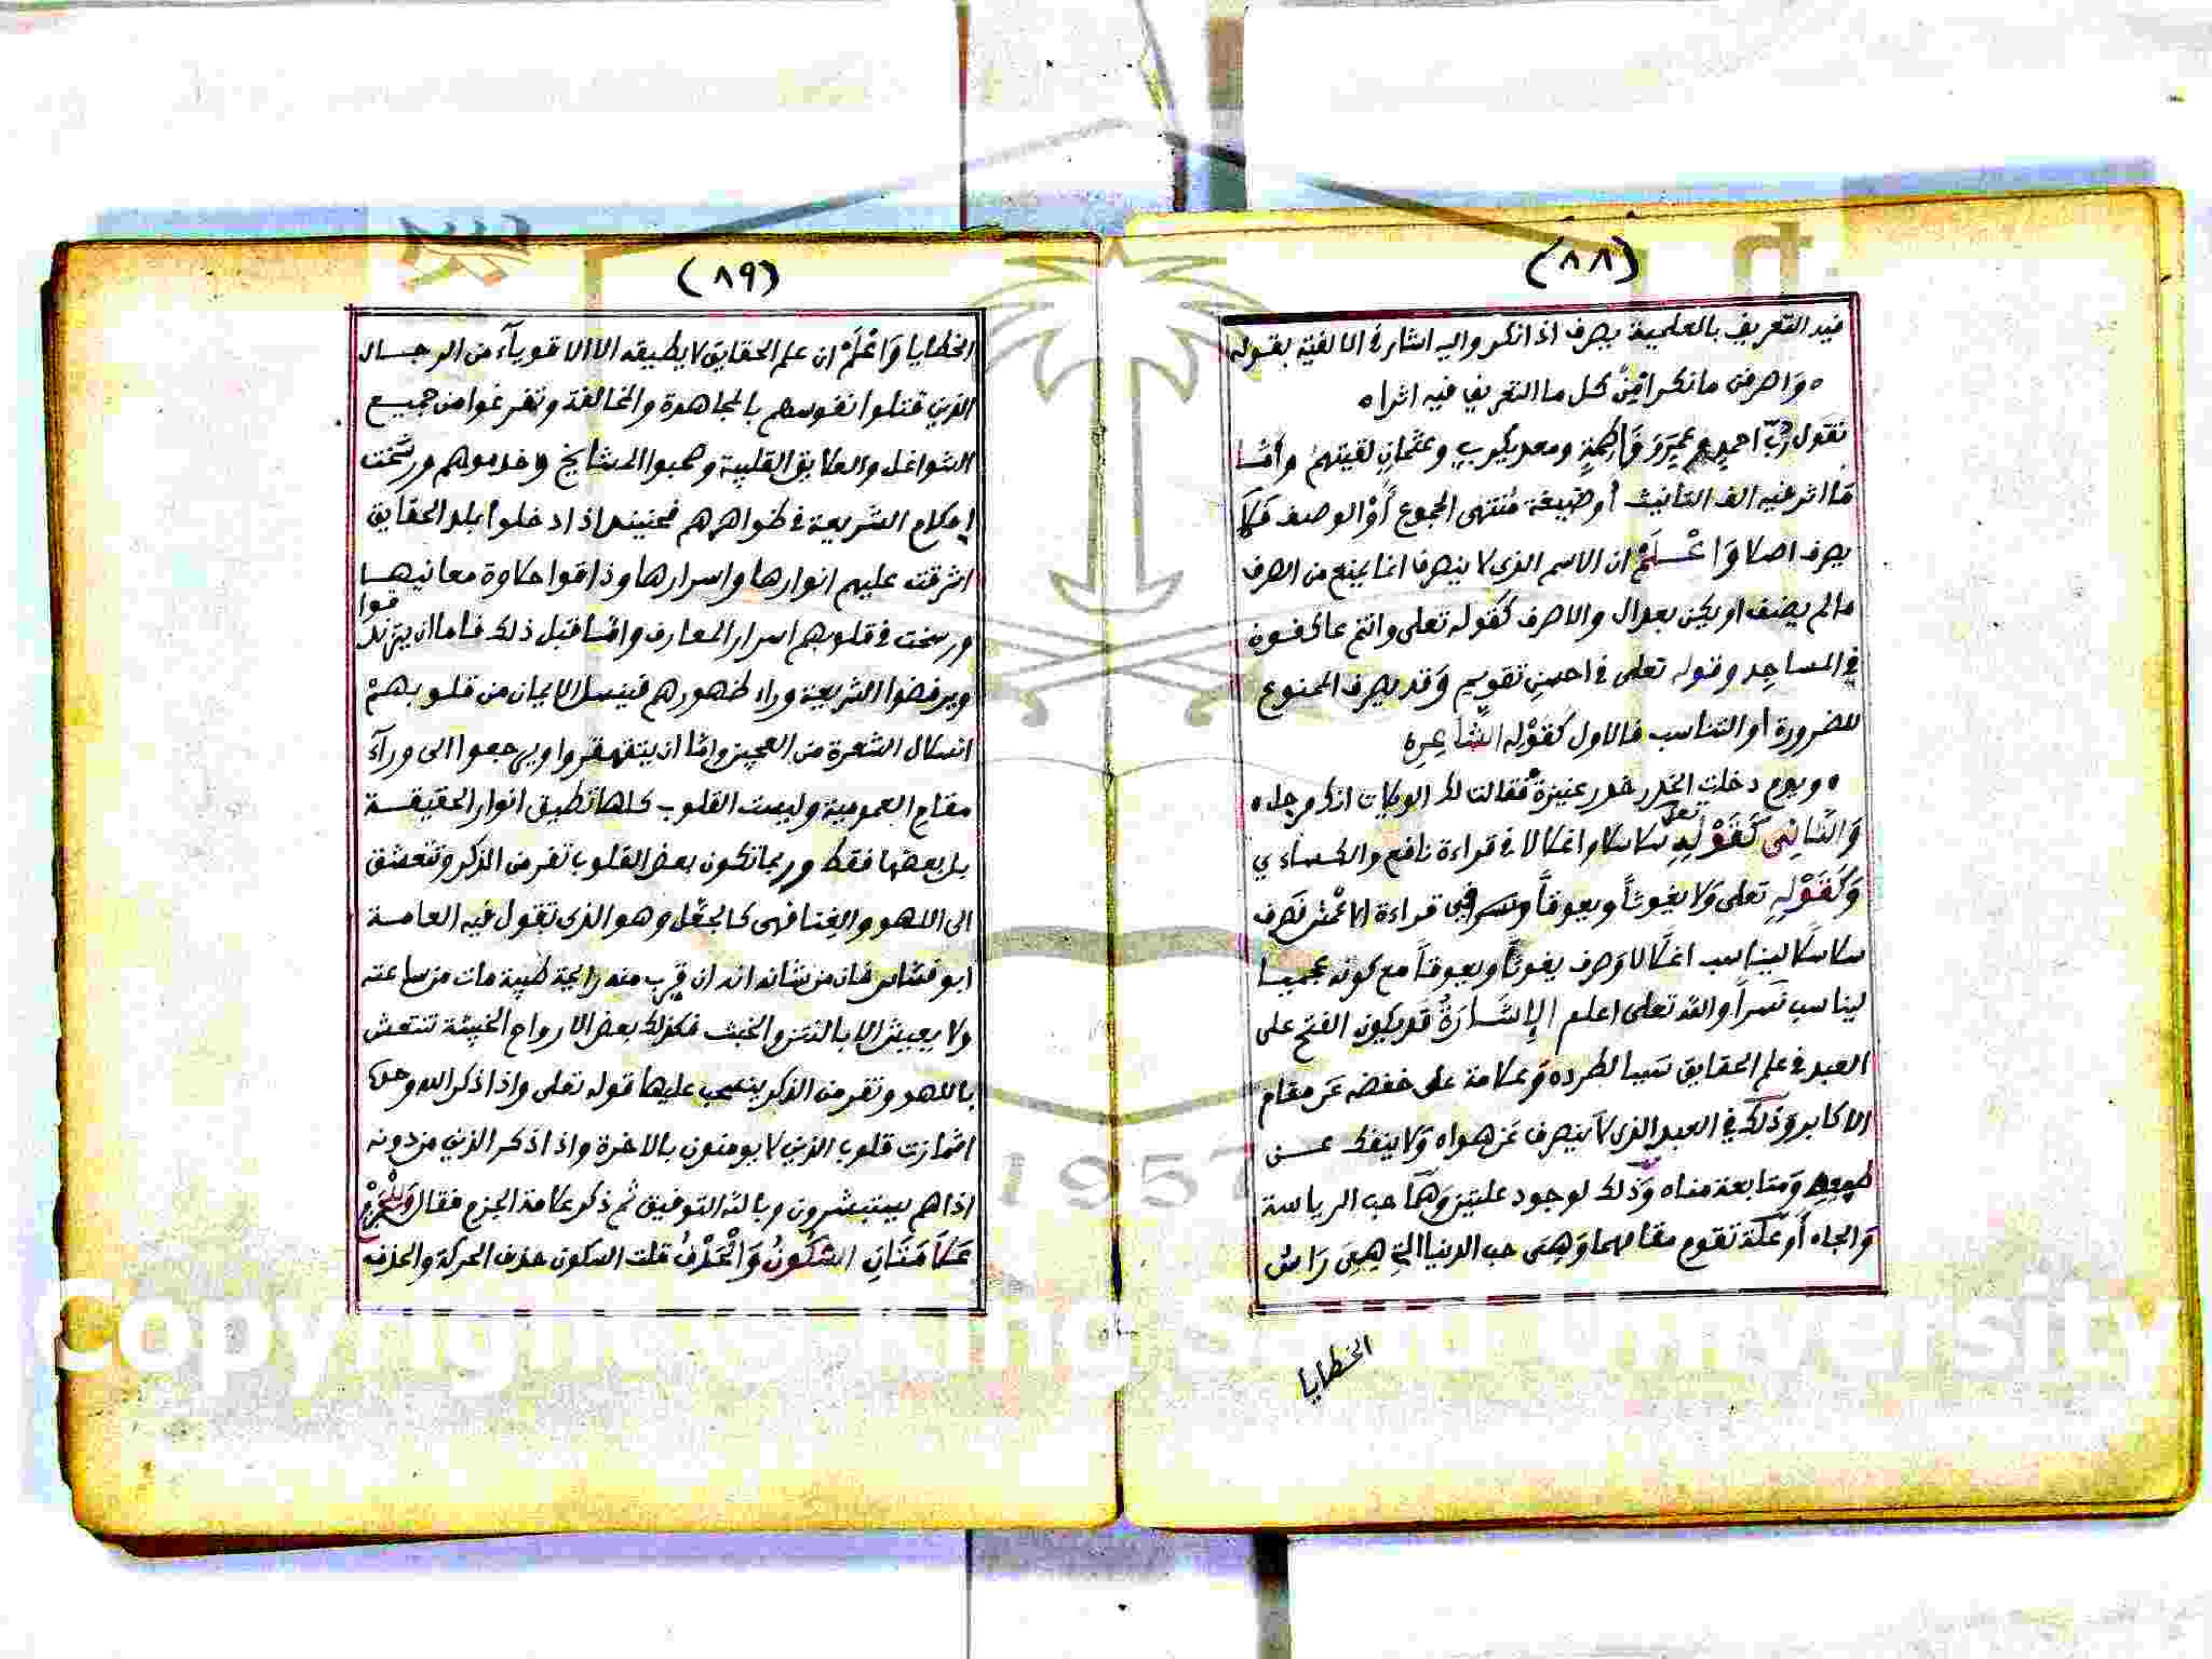 (٨٨)
فيه التعريف بالعلمية يصرف اذا نكر واليه اشار في الالفية بقوله
ه واصرفن ما نكرا مِنْ كل ما التعريف فيه اثرا ه
تقول رُبَّ احمدٍ وعميرَوَ فَاطِمَةٍ ومعديكربٍ وعثمانٍ لقيتهمْ وامّا
مَا اثر فيه الف التانيث أو صيغة مُنتهى الجموع أوْ الوصف فَلَا
يصرف اصلا وَاعْلَمْ ان الاسم الذي لا ينصرف انما يمنع من الصرف
مالم يضف او يكن بعد ال والا صرف كقوله تعلى وانتم عاكفون
في المساجد وقوله تعلى في احسنِ تقويم وَقد يصرف الممنوع
للضرورة أو التناسب فالاول كَقَوْلِه الشّاعِرِه
ه ويوم دخلت الخدر خدر عنيزةٍ فقالت لك الويلات انك مرجلي ه
وَالثّانِي كَقَوْلِهِ تعلى سلاسلا واغلالا في قراءة نافع والكساءي
وَكَقَوْلِهِ تعلى وَلا يغوثاً ويعوقاً ونسرا في قراءة الاعمش فَصرف
سلاسلا ليناسب اغلالا وَصرف يغوثاً ويعوقاً مع كونه عجميا
ليناسب نَسراً والله تعلى اعلم الإشَارَةُ قد يكون الفتح على
العبد في علم الحقايق سَببا لطرده وَعلامة على خفضه عَن مقام
الاكابر وَذَلك في العبد الذي لا ينصرف عَن هواه وَلا ينفك عن
طبعه وَمتابعة مناه وَذلك لوجود علتين وَهمَا حب الرياسة
وَالجاه أوْ علّة تقوم مقامهما وَهِىَ حب الدنيا التي هِىَ رَاسُ
الخطايا
(٨٩)
الخطايا وَاعْلَمْ ان علم الحقايق لا يطيقه الا الاقوياءُ من الرجال
الذين قتلوا نفوسهم بالمجاهدة والمخالفة وتفرغوا من جميع
الشواغل والعلايق القلبية وصحبوا المشايخ وخدموهم ورسّخت
احكام الشريعة في ظواهرهم فحينيذ اذا دخلوا بلد الحقايق
اشرقت عليهم انوارها واسرارها وذاقوا حلاوة معانيها
ورسخت في قلوبهم اسرار المعارف وامّا قبل ذلك فاما ان يتزندقوا
ويرفضوا الشريعة وراء ظهورهم فينسل الايمان من قلوبهمْ
انسلال الشعرة من العجين وامّا ان يتقهقروا ويرجعوا الى ورآءَ
مقام العمومية وليست القلوب كلها تطيق انوار الحقيقة
بل بعضها فقط وربما تكون بعض القلوب تنفر من الذكر وتتعشق
الى اللهو والغِنا فهى كالجعَل وهو الذي تقول فيه العامة
ابو فشاس فان من شانه انه ان قرب منه رايحة طيبة مات من ساعته
ولا يعيش الا بالنتن والخبث فكذلك بعض الارواح الخبيثة تنتعش
باللهو وتنفر من الذكر ينسحب عليها قوله تعلى واذا ذكر الله وحده
اشمازت قلوب الذين لا يومنون بالاخرة واذا ذكر الذين من دونه
اذا هم يستبشرون وبالله التوفيق ثم ذكر علامة الجزم فقال وَلِلْجَزْمِ
عَلَامَتَانِ السُّكُونُ وَالْحَذْفُ قلت السكون حذف الحركة والحذف
Copyright © King Saud University
1957